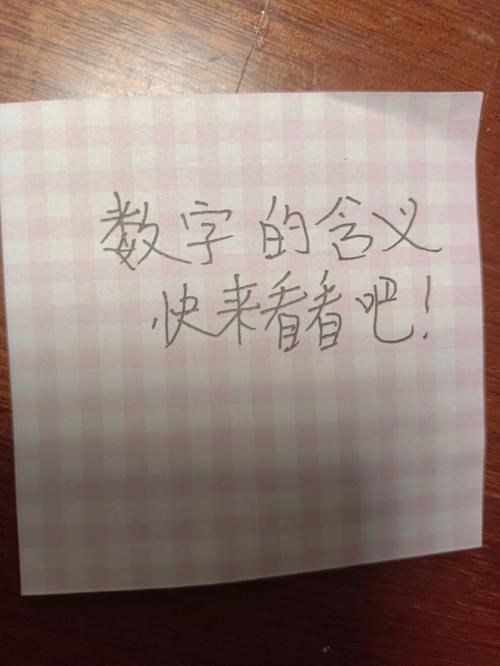 数字的含义
快来看看吧！